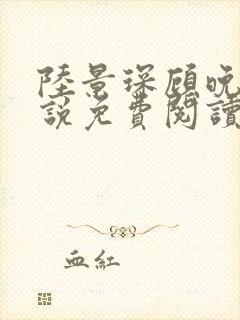 陸景琛顧晚
說免費閱讀
血紅